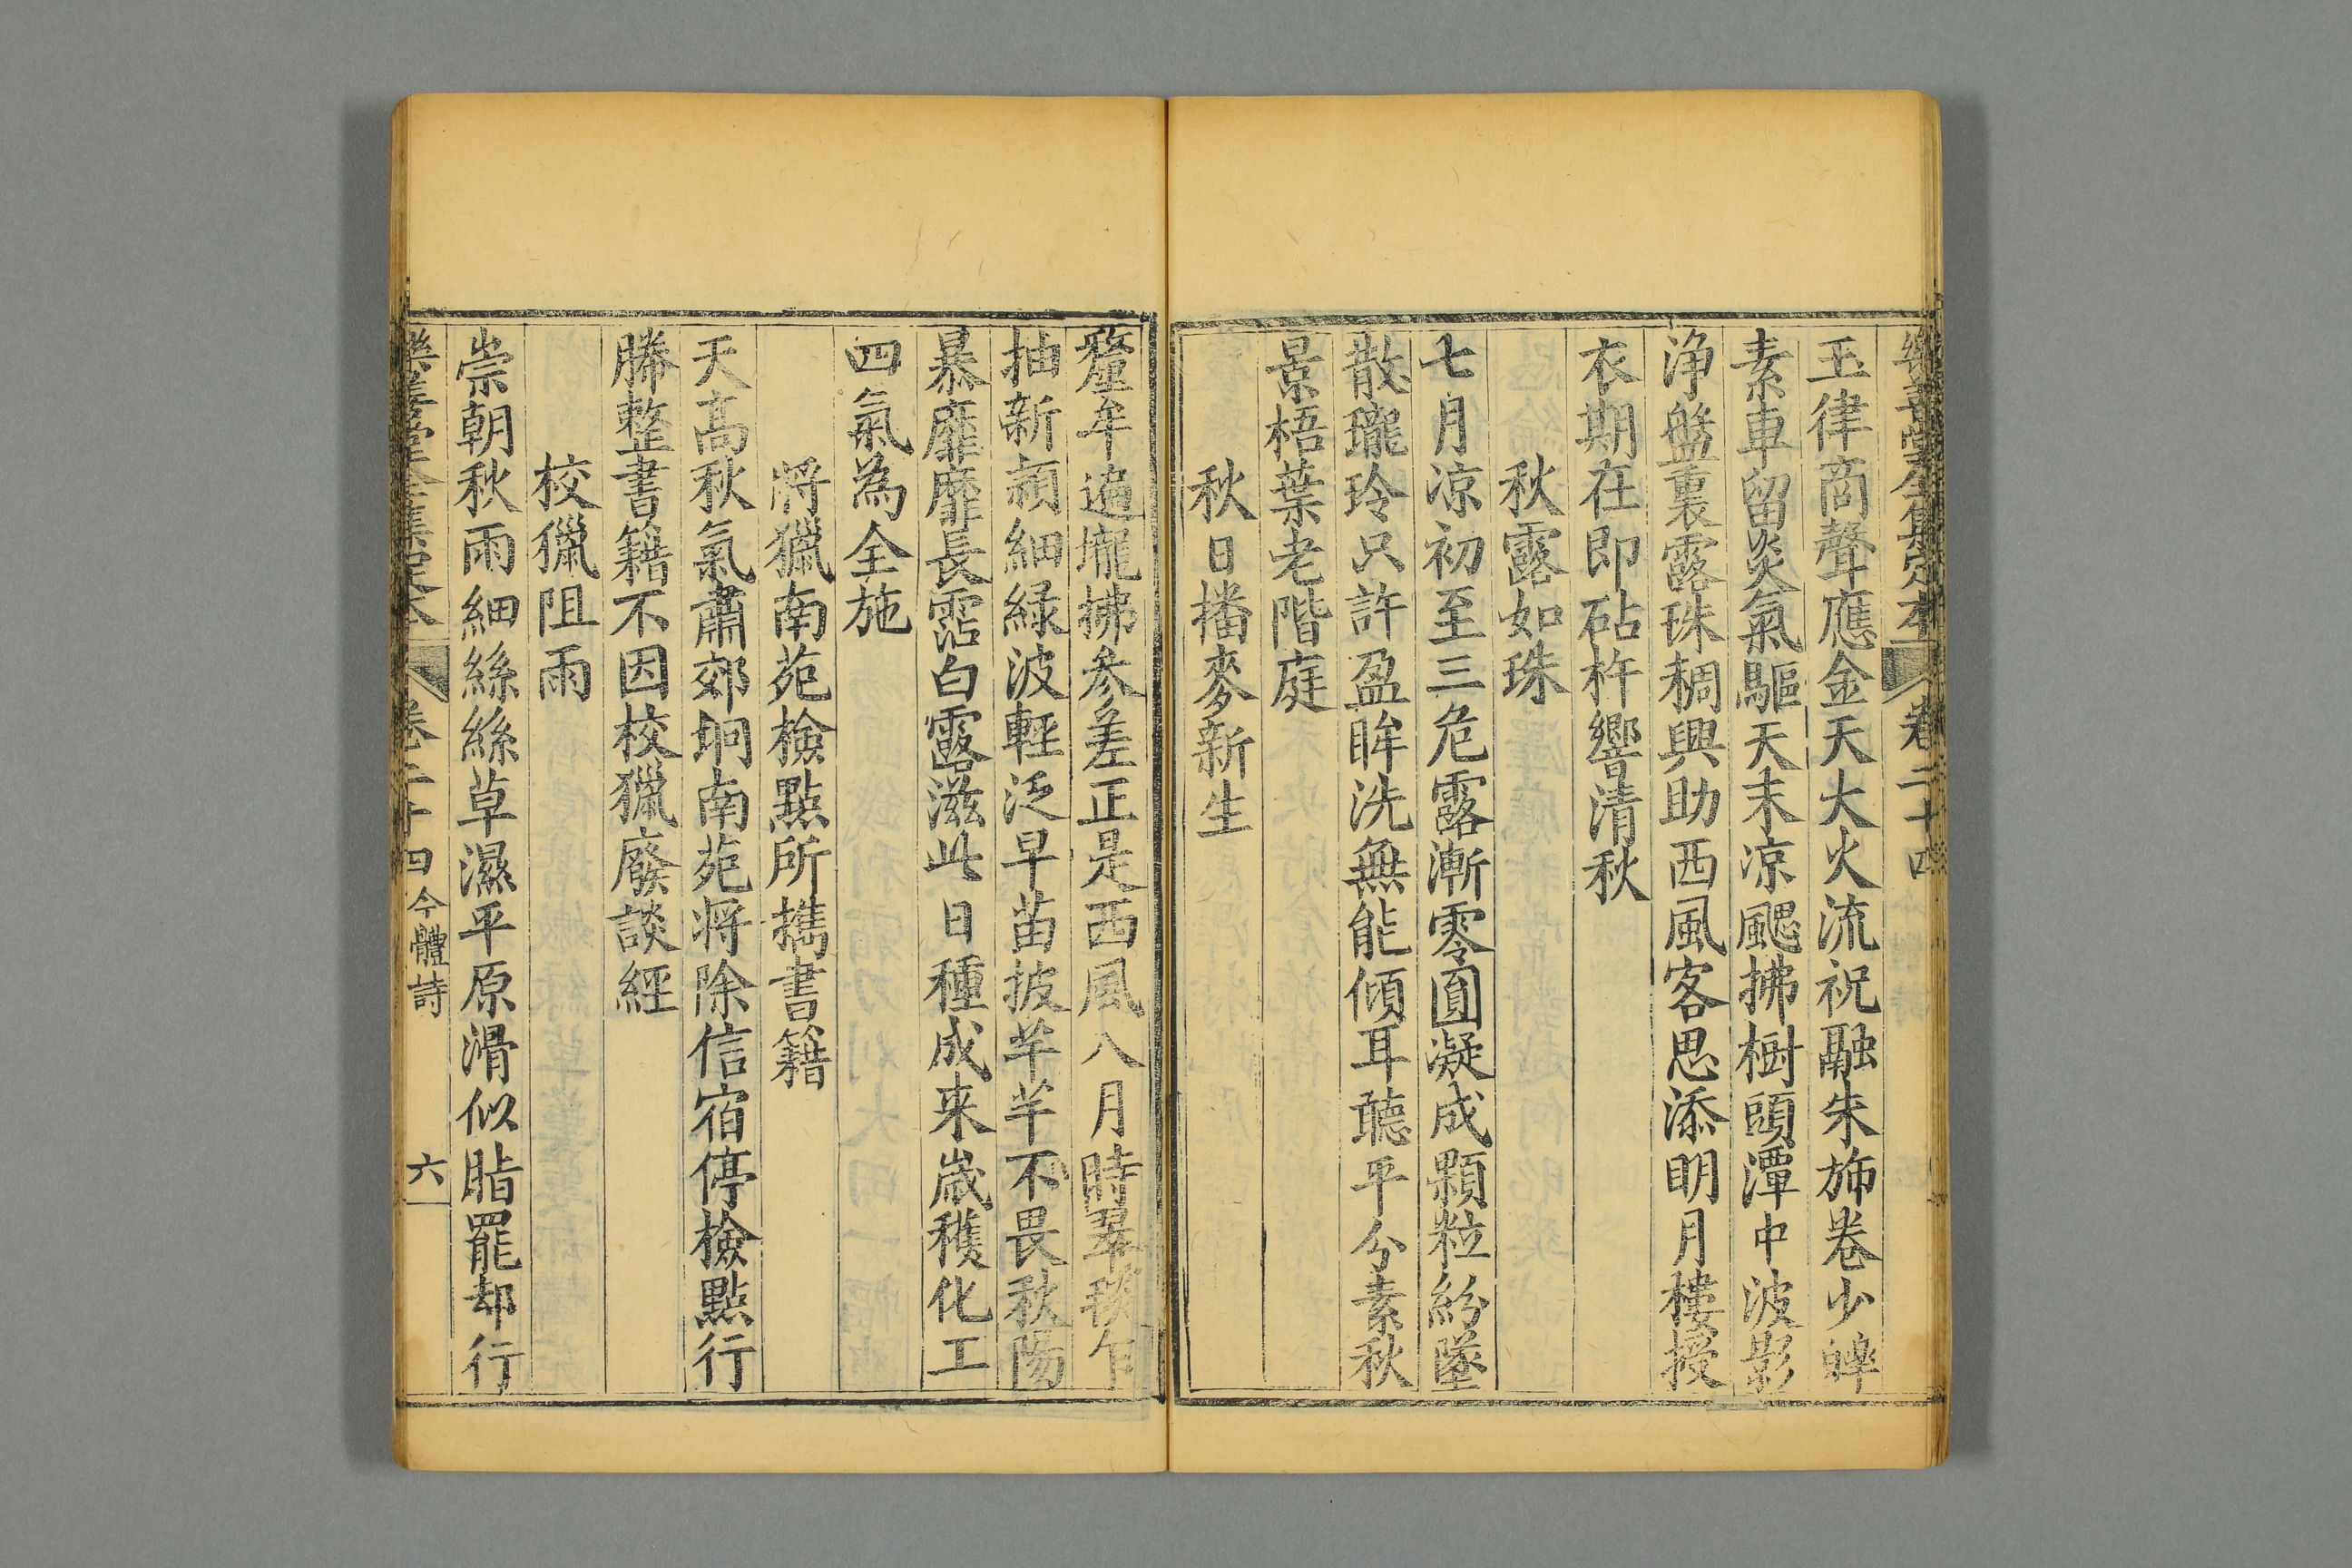 樂善堂全集定本 卷二十四
玉律商聲應金天大火流祝融朱斾卷少皡
素車留炎氣驅天末凉颸拂樹頭潭中波影
浄盤裏露珠稠興助西風客思添明月樓授
衣期在即砧杵響清秋
秋露如珠
七月凉初至三危露漸零圓凝成顆粒紛墜
散瓏玲只許盈眸洗無能傾耳聽平分素秋
景梧葉老階庭
秋日播麥新生
釐牟遍壠拂參差正是西風八月時翠毯乍
抽新穎細緑波輕泛早苗披芊芊不畏秋陽
暴靡靡長霑白露滋此日種成来嵗穫化工
四氣為全施
將獵南苑檢點所攜書籍
天髙秋氣肅郊坰南苑将除信宿停檢點行
縢整書籍不因校獵廢談經
校獵阻雨
崇朝秋雨細絲絲草濕平原滑似脂罷却行
樂善堂全集定本 卷二十四 今體詩 六